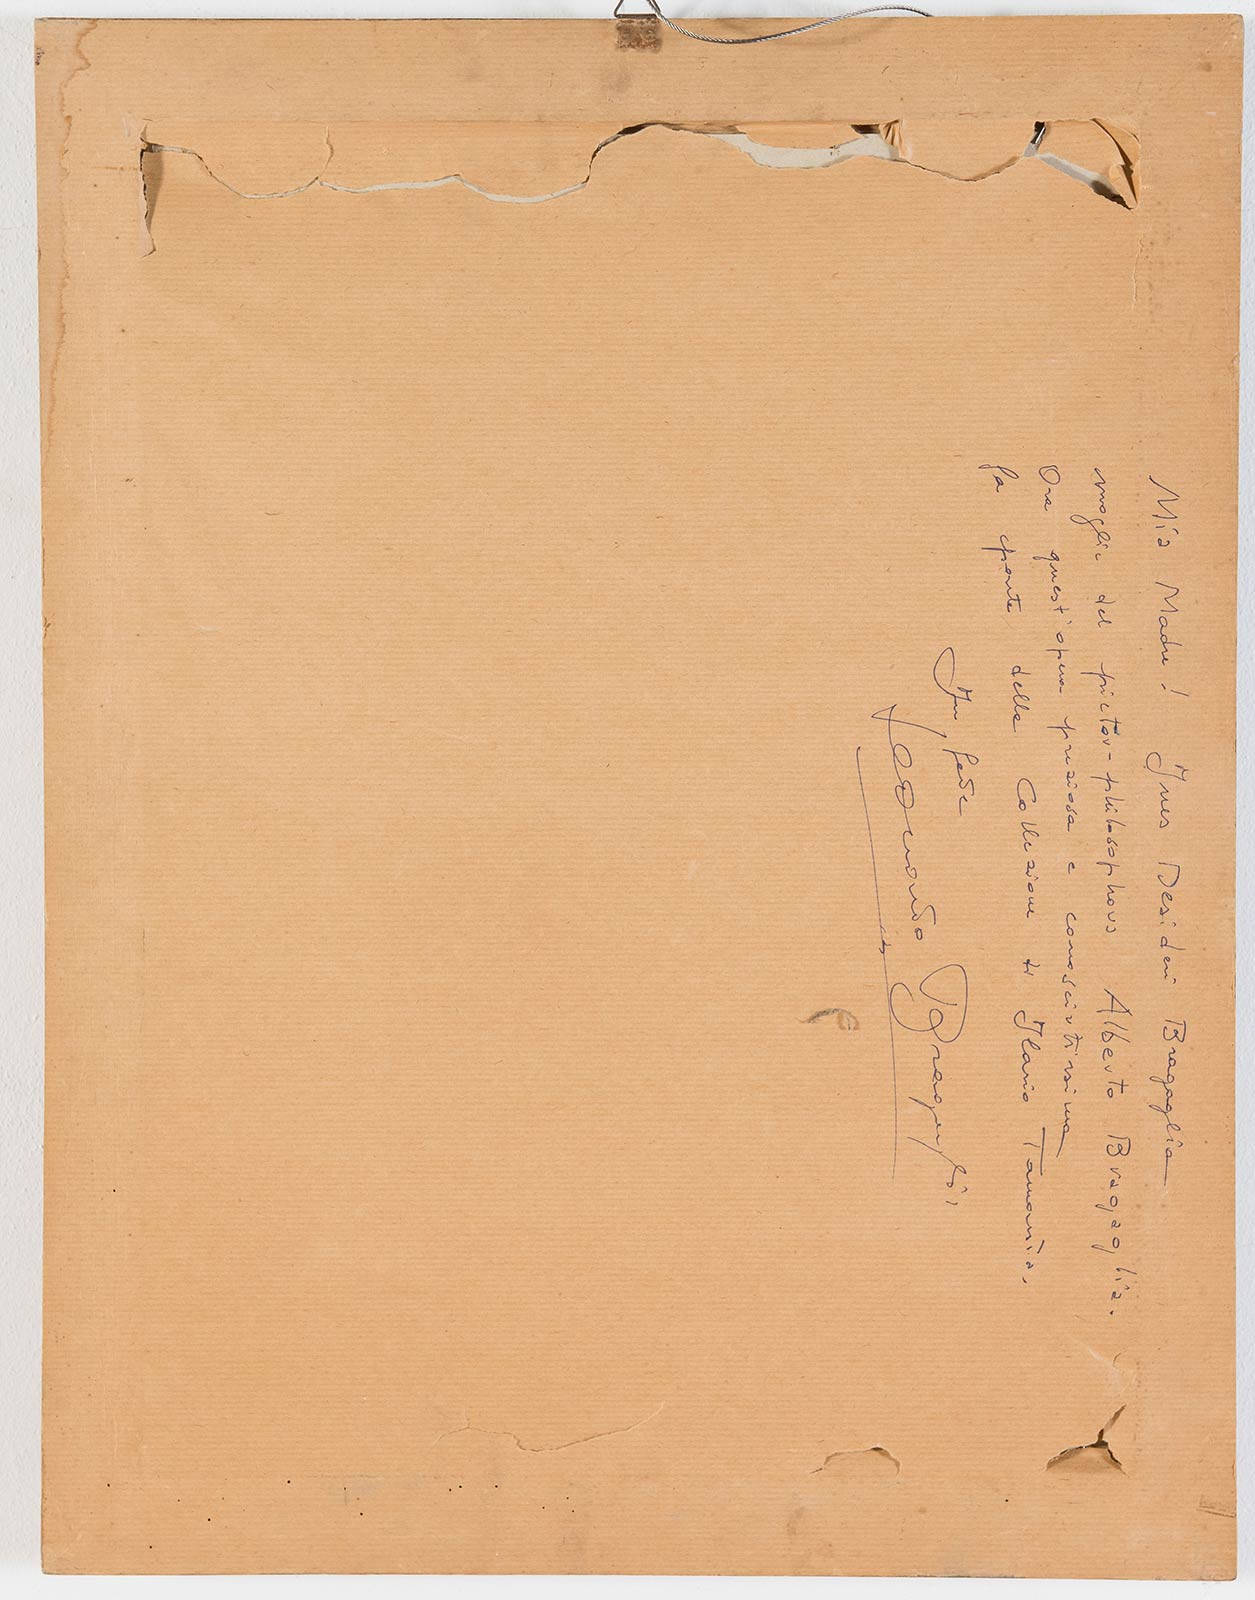 Mia Madre! Ines Desideri Bragaglia
moglie del pictor-philosophus Alberto Bragaglia.
Ora quest'opera preziosa e conosciutissima
fa parte della Collezione di Ilario Tamassia.
In fede
Leonardo Bragaglia